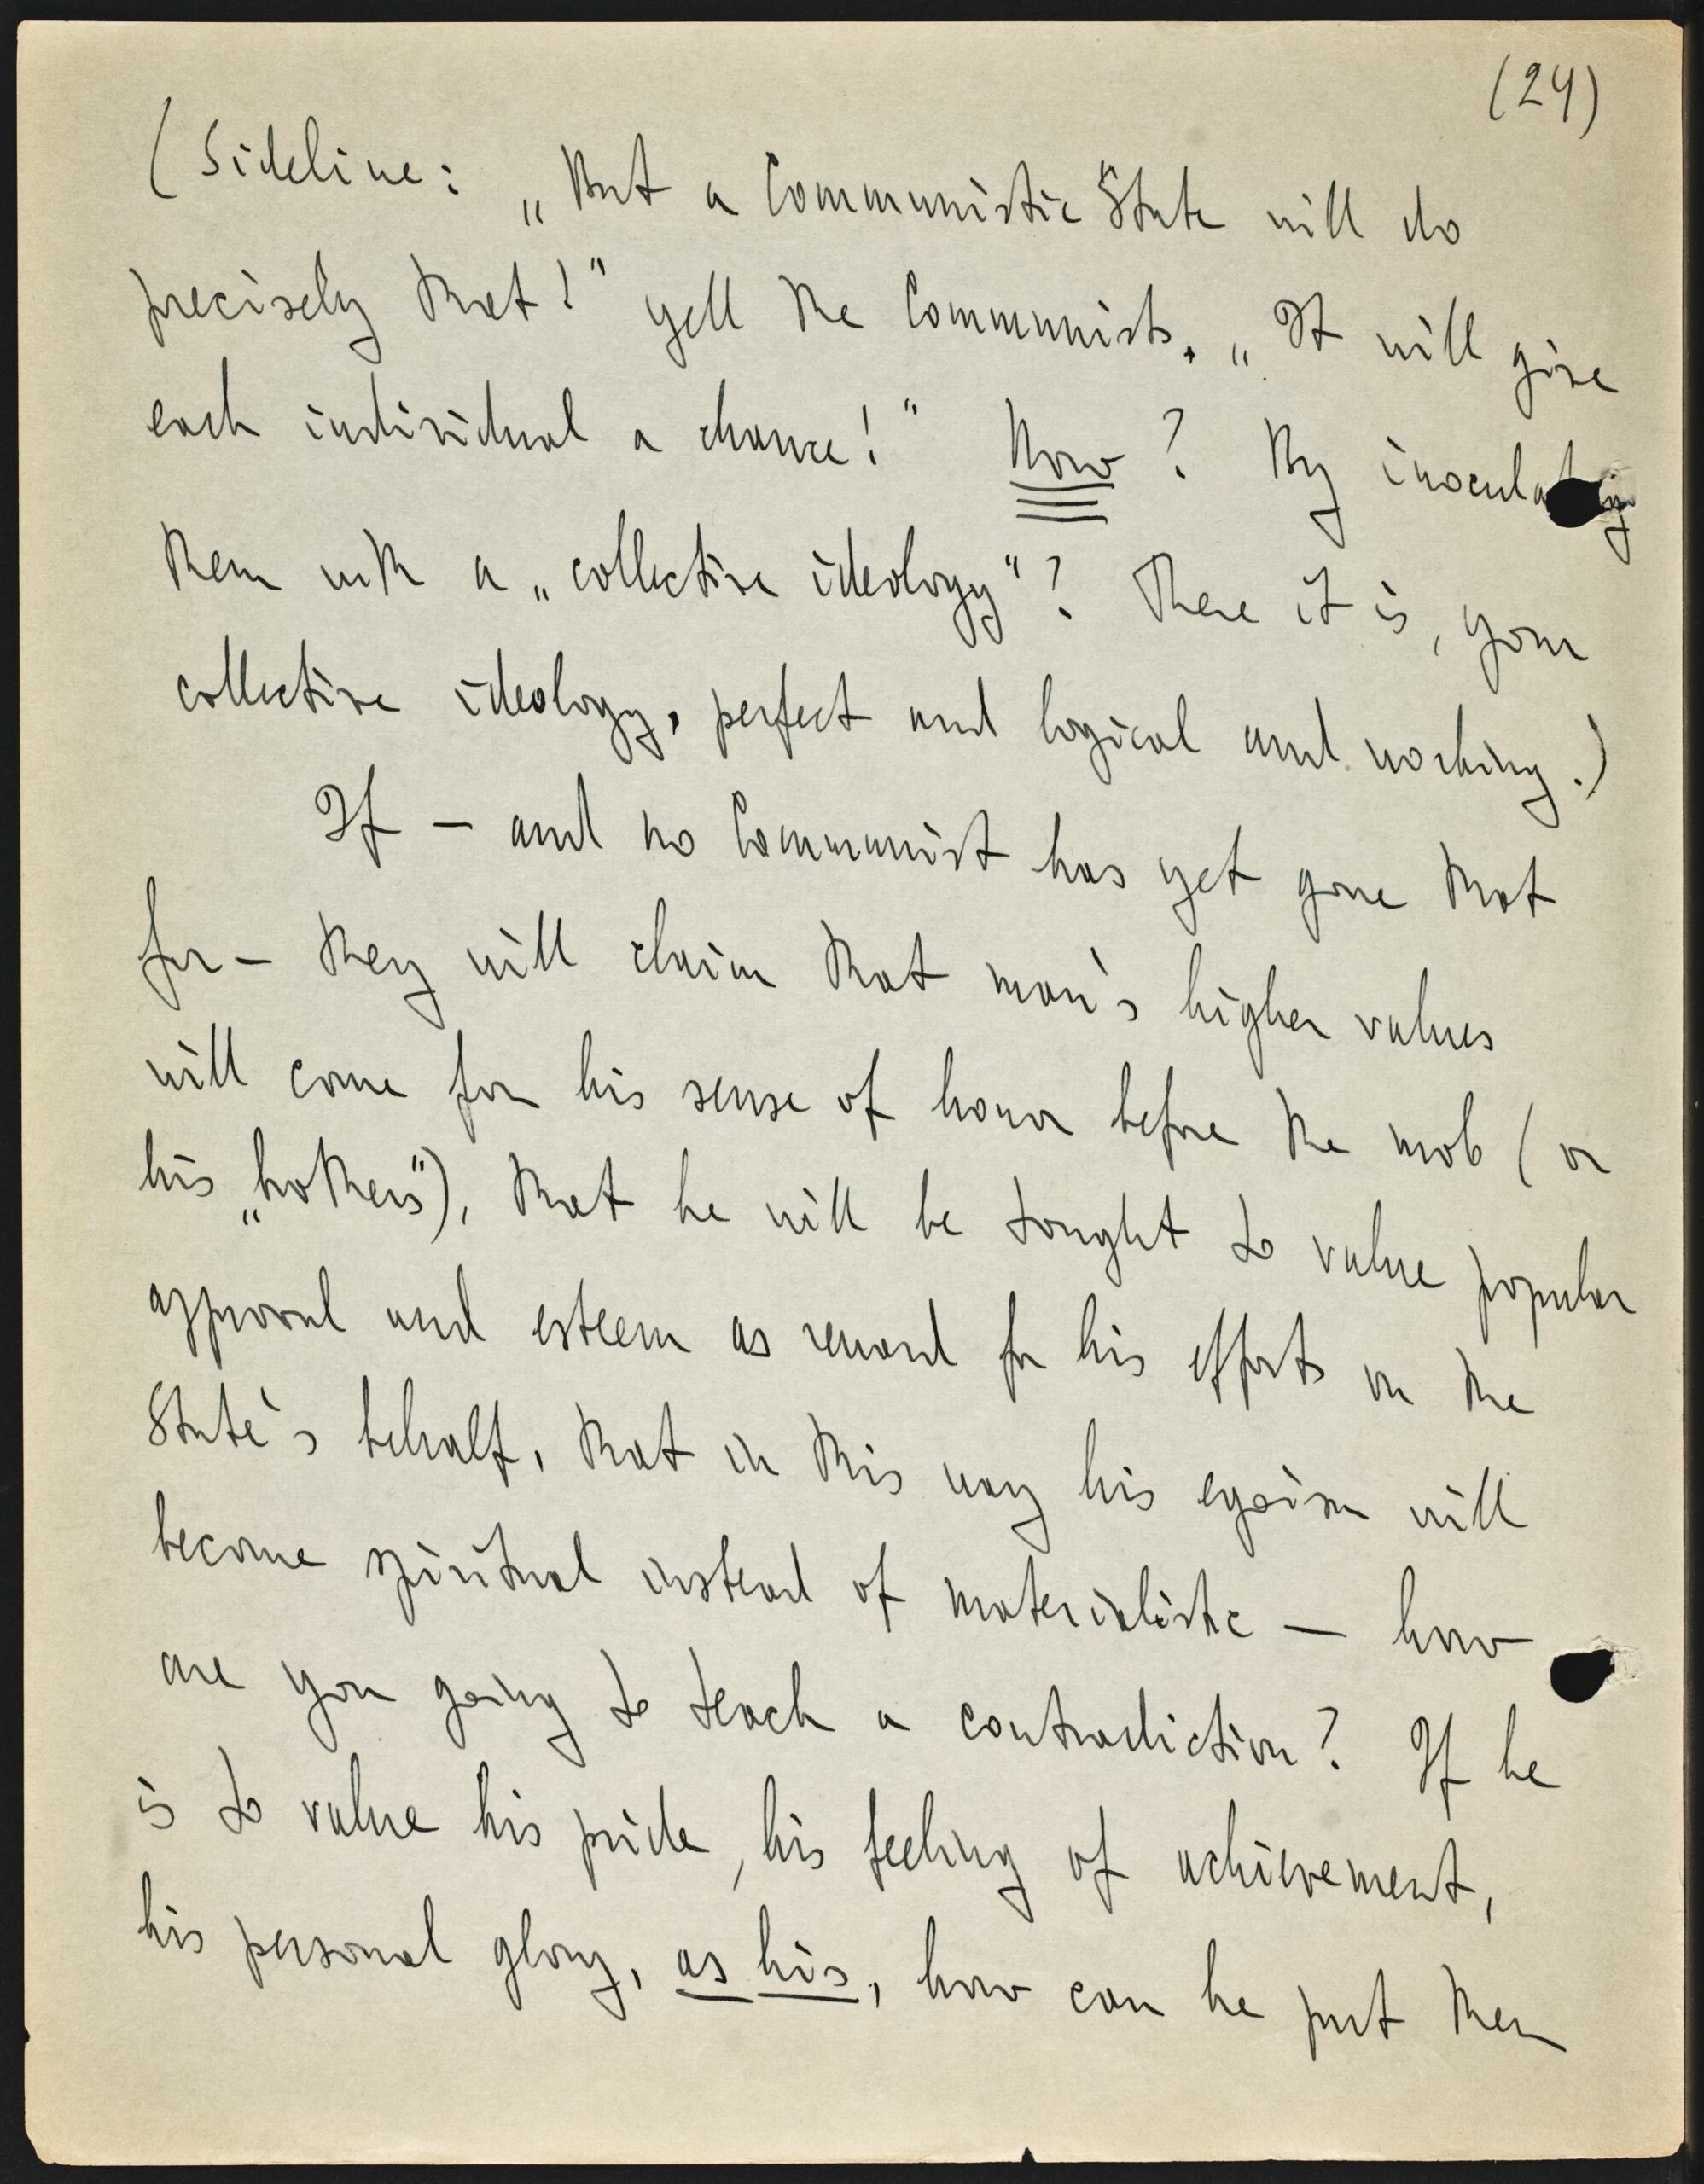 (24)
(Sideline: „But a Communistic State will do
precisely that!" yell the Communists. „It will give
each individual a chance!" How? By inoculating
them with a „collective ideology"? There it is, your
collective ideology, perfect and logical and working.)
If — and no Communist has yet gone that
far — they will claim that man's higher values
will come from his sense of honor before the mob (or
his „brothers"), that he will be taught to value popular
approval and esteem as reward for his efforts on the
State's behalf, that in this way his egoism will
become spiritual instead of materialistic — how
are you going to teach a contradiction? If he
is to value his pride, his feeling of achievement,
his personal glory, as his, how can he put them